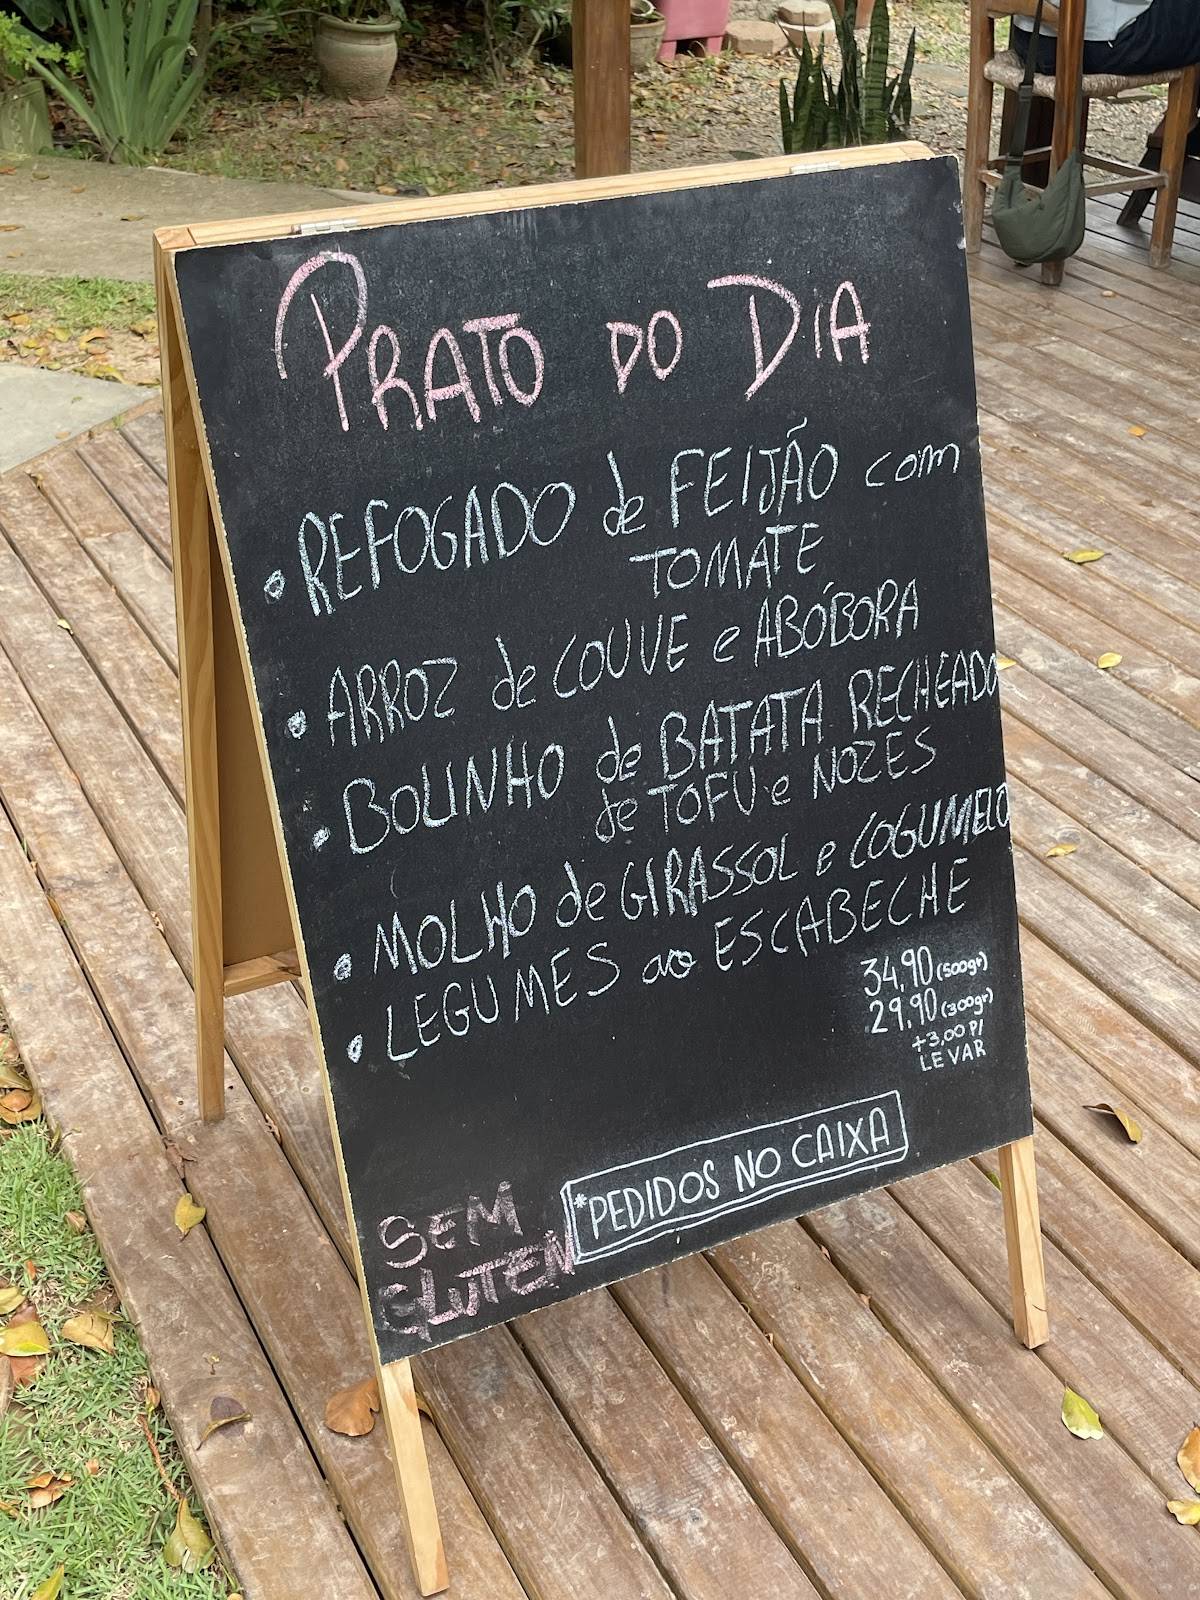 PRATO DO DIA
• REFOGADO de FEIJÃO com
TOMATE
• ARROZ de COUVE e ABÓBORA
• BOLINHO de BATATA RECHEADO
de TOFU e NOZES
• MOLHO de GIRASSOL e COGUMELO
• LEGUMES ao ESCABECHE
34,90 (500gr)
29,90 (300gr)
+3,00 P/
LEVAR
*PEDIDOS NO CAIXA
SEM
GLUTEN